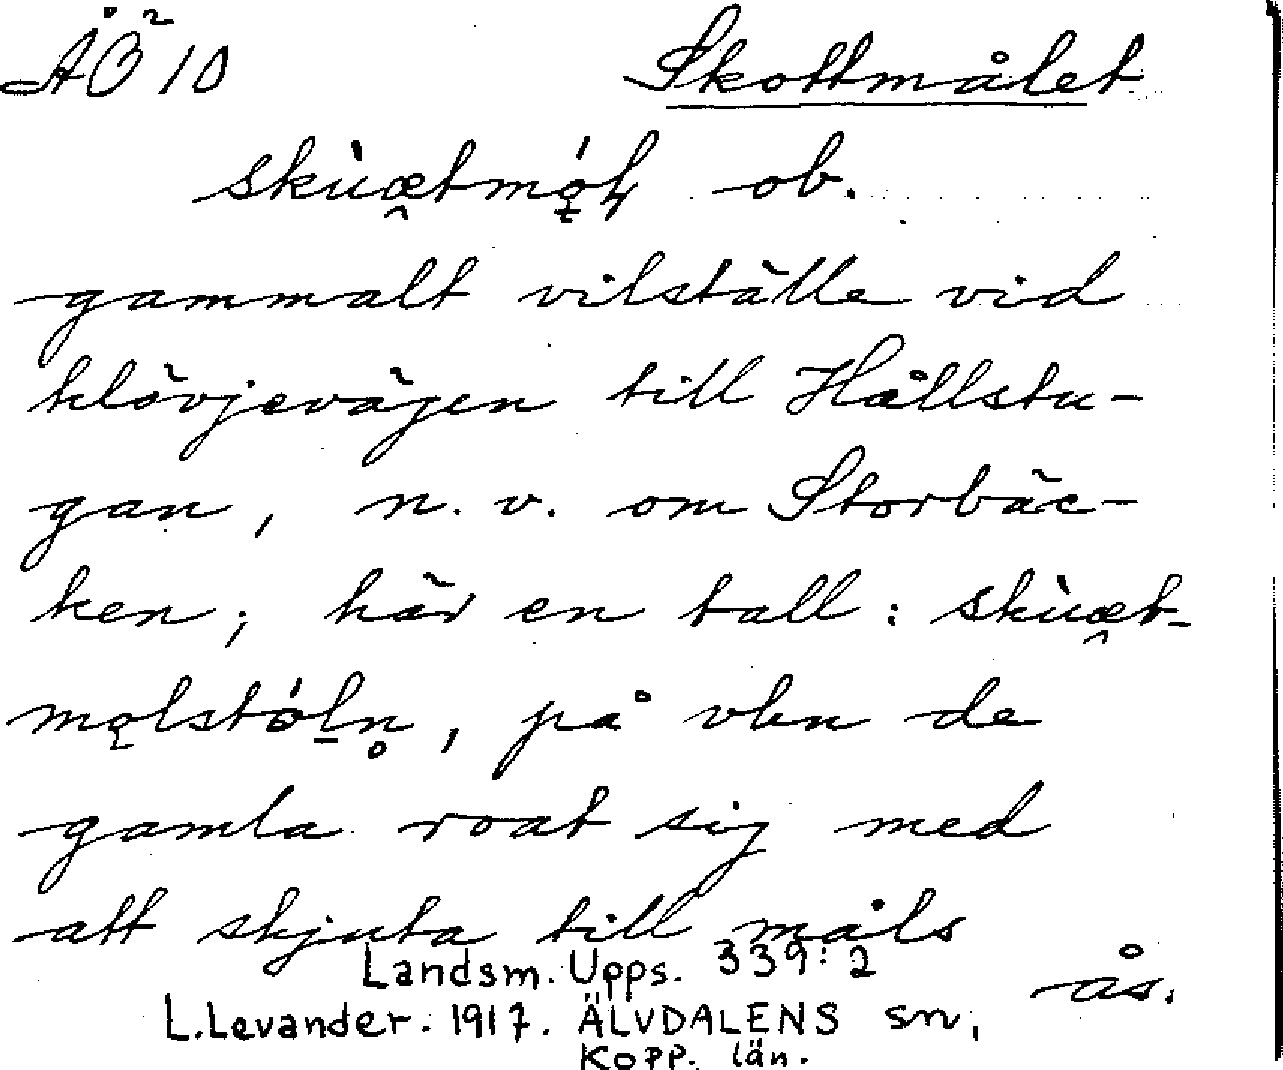 ÅÖ 10 Skottmålet
skùæ̯tmǫ́lɩ ob.
gammalt vilställe vid
klövjevägen till Hållstu-
gan, n. v. om Storbäc-
ken; här en tall: skùæ̯t-
mǫlstól̠n̥, på vlen de
gamla roat sig med
att skjuta till måls
Landsm. Upps. 339:2
ås.
L. Levander. 1917. ÄLVDALENS sn,
Kopp. län.